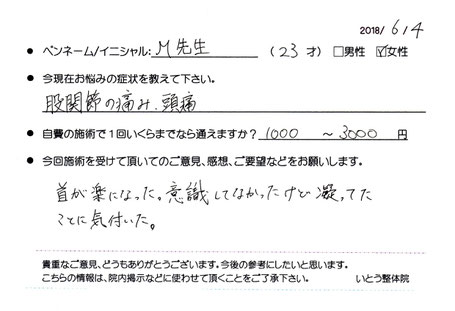 2018/ 6/4
● ペンネーム/イニシャル: M先生 (23 才) □男性 ☑女性
● 今現在お悩みの症状を教えて下さい。
股関節の痛み、頭痛
● 自費の施術で1回いくらまでなら通えますか? 1000 ～3000 円
● 今回施術を受けて頂いてのご意見、感想、ご要望などをお願いします。
首が楽になった。意識してなかったけど凝ってた
ことに気付いた。
貴重なご意見、どうもありがとうございます。今後の参考にしたいと思います。
こちらの情報は、院内掲示などに使わせて頂くことをご了承下さい。 いとう整体院